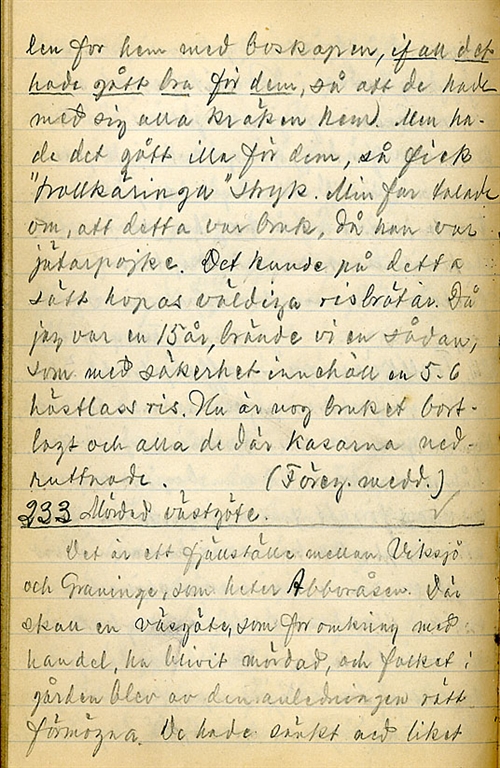 len for hem med boskapen, if all det
hade gått bra för dem, så att de hade
med sig alla kräken hem). Men ha-
de det gått illa för dem, så fick
"trollkäringa" stryk. Min far talade
om, att detta var bruk, då han var
jätarpojke. Det kunde på detta
sätt hopas väldiga risbråtar. Då
jag var en 15 år, brände vi en sådan,
som med säkerhet innehöll en 5-6
hästlass ris. Nu är nog bruket bort-
lagt och alla de där kasarna ned-
ruttnade. (Föreg. medd.)
233 Mördad västgöte.
Det är ett fjällställe mellan Viksjö
och Graninge, som heter Abboråsen. Där
skall en västgöte, som for omkring med
handel, ha blivit mördad, och folket i
gården blev av den anledningen rätt
förmögna. De hade sänkt ned liket